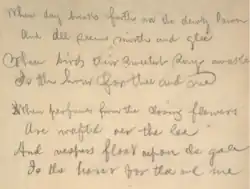 When day breaks forth o'er the dewy lawn
And all seems mirth and glee
When birds their sweetest songs awake
Is the hour for thee and me
When perfumes from the closing flowers
Are wafted over the lea
And whispers float upon the gale
Is the hour for thee and me